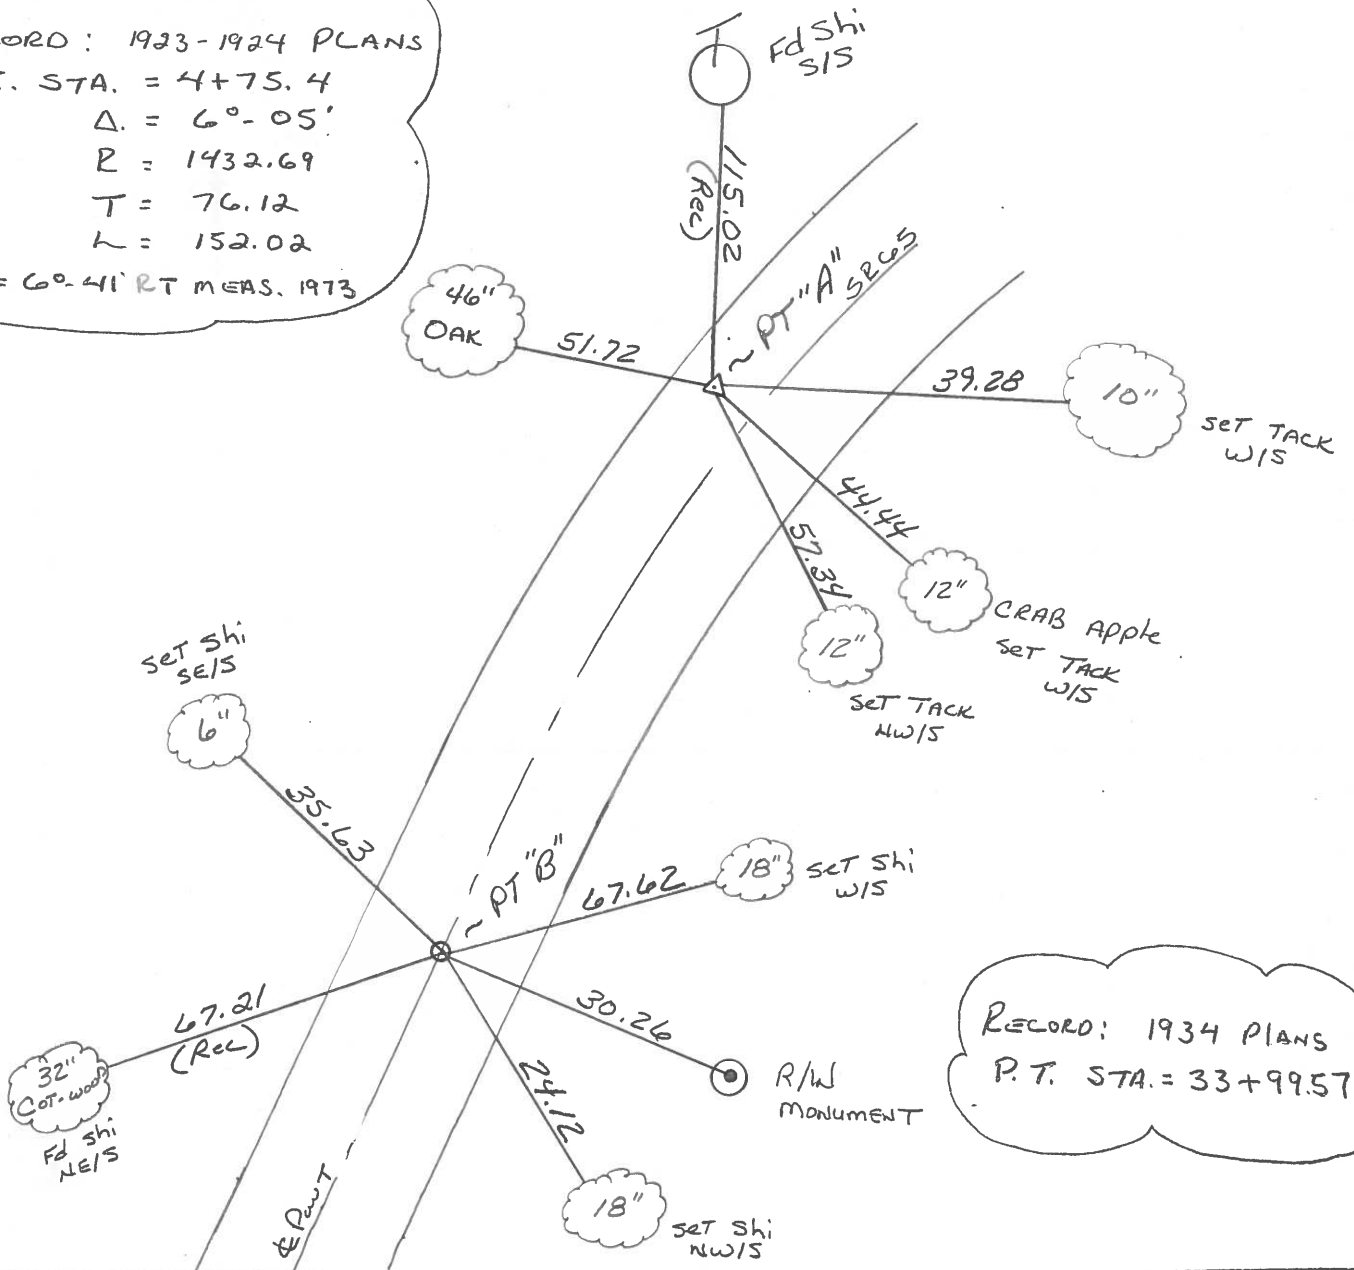 ORD : 1923-1924 PLANS
. STA. = 4+75.4
Δ. = 6°-05'
R = 1432.69
T = 76.12
L = 152.02
= 6°-41' RT MEAS. 1973
Fd Shi
S/S
115.02
(Rec)
46"
OAK
51.72
~ PT "A"
SR65
39.28
10"
SET TACK
W/S
44.44
12"
CRAB APPle
SET TACK
W/S
57.34
12"
SET TACK
NW/S
SET Shi
SE/S
6"
35.63
~ PT "B"
67.62
18"
SET Shi
W/S
67.21
(Rec)
32"
COT-WOOD
Fd Shi
NE/S
30.26
R/W
MONUMENT
24.12
18"
SET Shi
NW/S
℄ PavT
RECORD: 1934 PlANS
P.T. STA. = 33+99.57